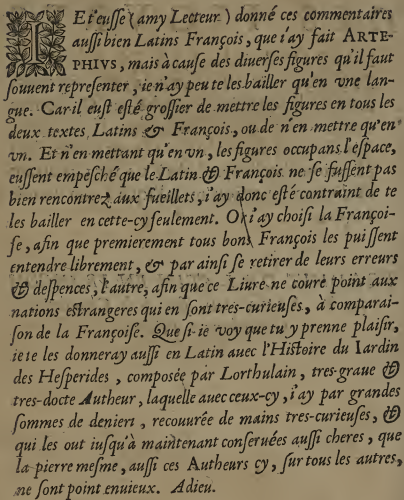 IEt'eusse (amy Lecteur) donné ces commentaires
aussi bien Latins François, que i'ay fait ARTE-
PHIVS, mais à cause des diuerses figures qu'il faut
souuent representer, ie n'ay peu te les bailler qu'en vne lan-
gue. Car il eust esté grossier de mettre les figures en tous les
deux textes, Latins & François, ou de n'en mettre qu'en
vn. Et n'en mettant qu'en vn, les figures occupans l'espace,
eussent empesché que le Latin & François ne se fussent pas
bien rencontrez aux fueillets, i'ay donc esté contraint de te
les bailler en cette-cy seulement. Or i'ay choisi la Françoi-
se, afin que premierement tous bons François les puissent
entendre librement, & par ainsi se retirer de leurs erreurs
& despences, l'autre, afin que ce Liure ne coure point aux
nations estrangeres qui en sont tres-curieuses, à comparai-
son de la Françoise. Que si ie voy que tu y prenne plaisir,
ie te les donneray aussi en Latin auec l'Histoire du Iardin
des Hesperides, composée par Lorthulain, tres-graue &
tres-docte Autheur, laquelle auec ceux-cy, i'ay par grandes
sommes de deniers, recouurée de mains tres-curieuses, &
qui les out iusqu'à maintenant conseruées aussi cheres, que
la pierre mesme, aussi ces Autheurs cy, sur tous les autres,
ne sont point enuieux. Adieu.